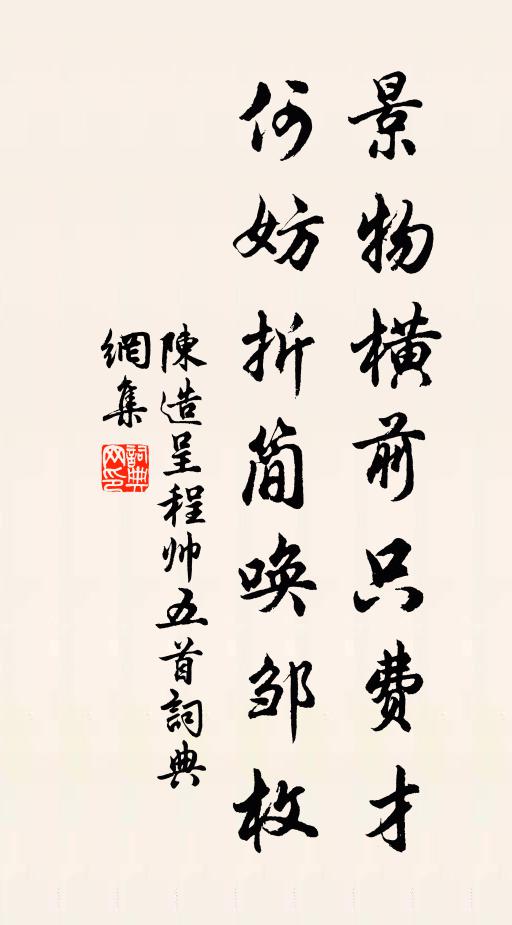 景物横前只费才
何妨折简唤邹枚
陳造呈程帅五首詞典
網集
詞典网印